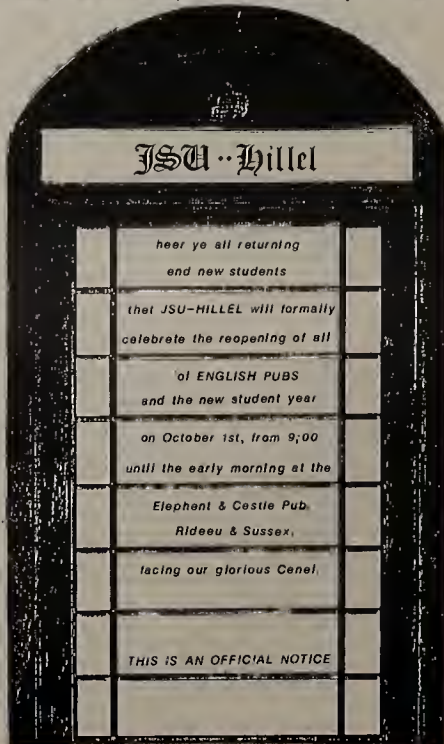 JSU--Hillel
heer ye all returning
end new students
thet JSU-HILLEL will formally
celebrete the reopening of all
of ENGLISH PUBS
and the new student year
on October 1st, from 9:00
until the early morning at the
Elephent & Cestle Pub,
Rideeu & Sussex,
facing our glorious Cenel,
THIS IS AN OFFICIAL NOTICE